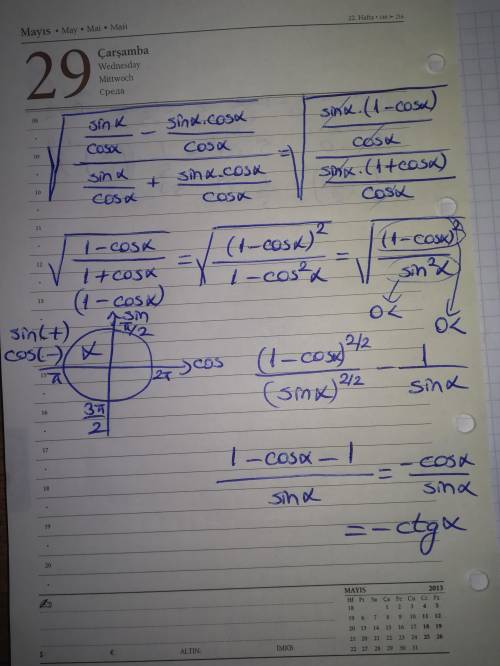 Mayıs • May • Mai • Май
22. Hafta
29
Çarşamba
Wednesday
Mittwoch
Среда
√(((sinα/cosα) − (sinα·cosα/cosα)) / ((sinα/cosα) + (sinα·cosα/cosα))) = √((sinα·(1−cosα)/cosα) / (sinα·(1+cosα)/cosα))
√((1−cosα)/(1+cosα)) = √((1−cosα)²/(1−cos²α)) = √((1−cosα)²/sin²α)
(1−cosα)
0< 0<
sin
π/2
sin(+)
cos(−)
α
cos
π
2π
3π/2
(1−cosα)^(2/2)/(sinα)^(2/2) − 1/sinα
(1−cosα−1)/sinα = −cosα/sinα
= −ctgα
09
10
11
12
13
15
16
17
18
19
20
MAYIS 2013
Hf Pt Sa Ça Pe Cu Ct Pz
18 1 2 3 4 5
19 6 7 8 9 10 11 12
20 13 14 15 16 17 18 19
21 20 21 22 23 24 25 26
22 27 28 29 30 31
$ € ALTIN: İMKB